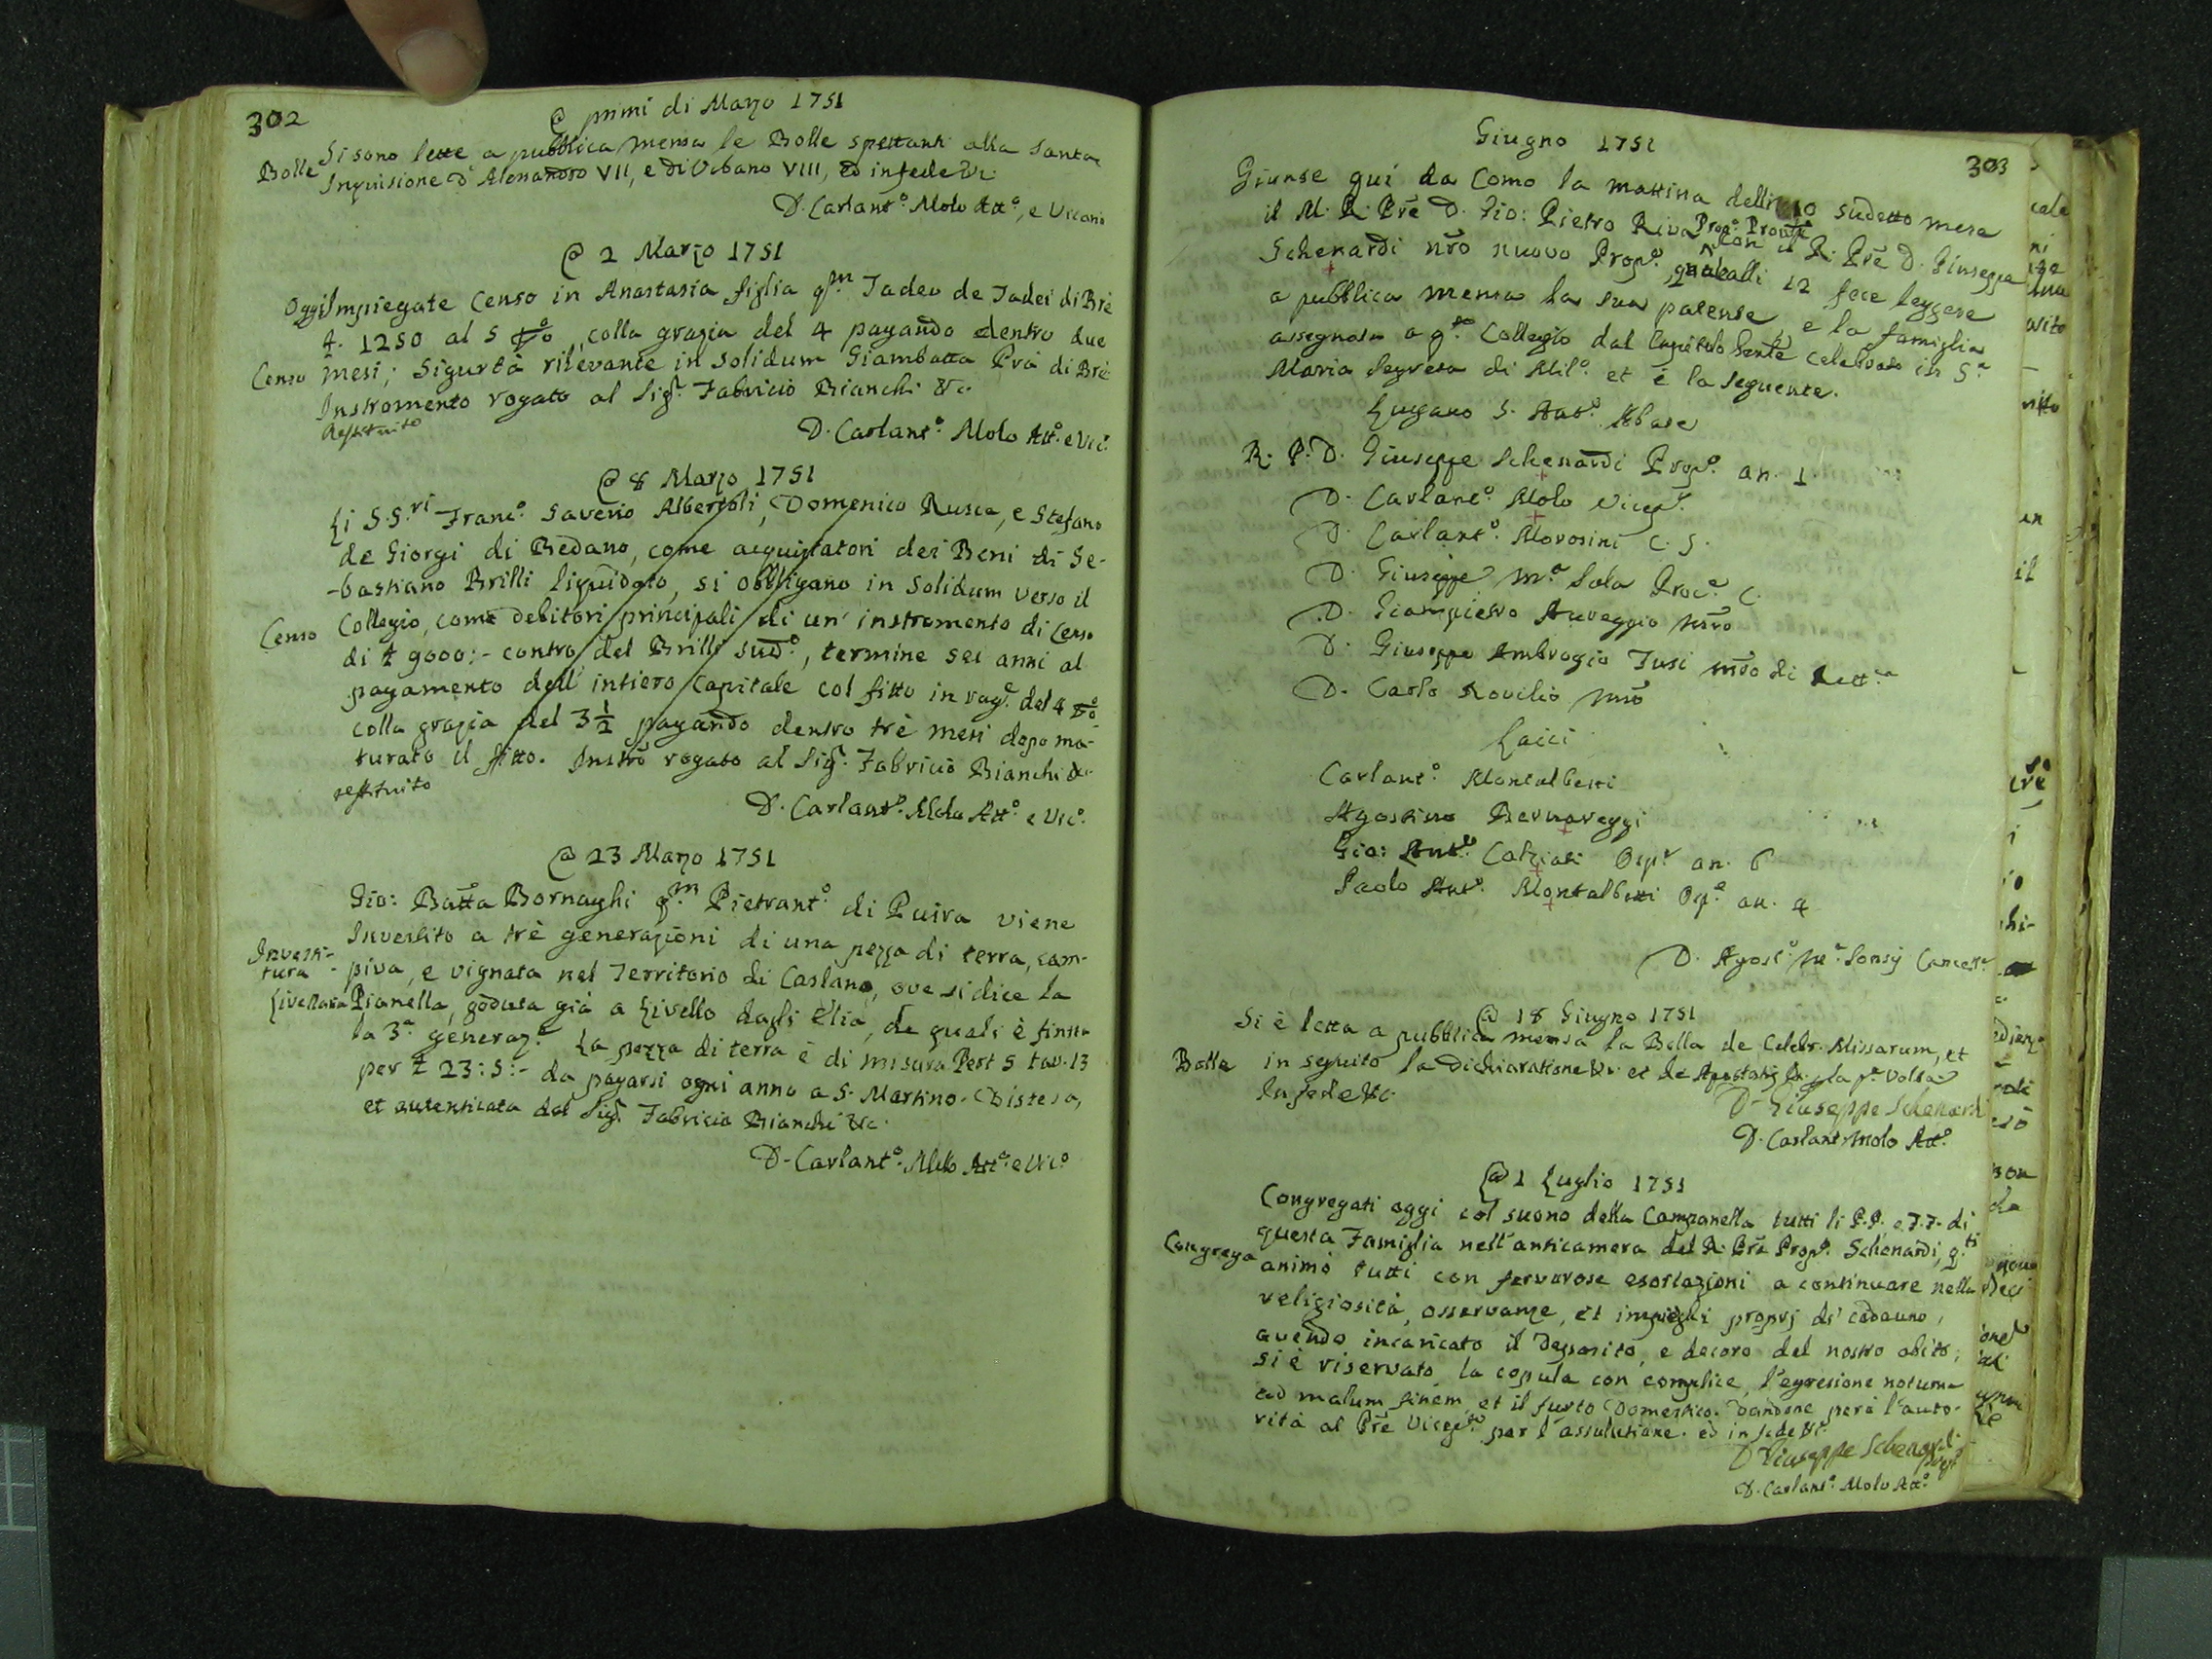 302
@ primi di Marzo 1751
Si sono lette a pubblica mensa le Bolle spettanti alla Santa
Bolle
Inquisione d'Alessandro VII, e di Urbano VIII, ed in fede &c.
D. Carlant.º Molo Att.º, e Vicario
@ 2 Marzo 1751
Oggi Impiegate Censo in Anastasia figlia q.m Tadeo de Tadei di Bré
ꝉ. 1250 al 5 %, colla grazia del 4 pagando dentro due
Censo
mesi; Sigurtà rilevante in solidum Giambatta Prà di Bré
Instromento rogato al Sig.r Fabricio Bianchi &c.
Restituito
D. Carlant.º Molo Att.º e Vic.º
@ 8 Marzo 1751
Li S.S.ri Franc.º Saverio Albertolli, Domenico Rusca, e Stefano
de Giorgi di Bedano, come acquistatori dei Beni di Se-
-bastiano Brilli liquidato, si obbligano in solidum verso il
Censo
Collegio, come debitori principali di un' instromento di Censo
di ꝉ 9000:- contro del Brilli sud.º, termine sei anni al
pagamento dell' intiero Capitale col fitto in rag.e del 4 %
colla grazia del 3 1/2 pagando dentro trè mesi dopo ma-
turato il fitto. Instrõ rogato al Sig.r Fabricio Bianchi &c.
restituito
D. Carlant.º Molo Att.º e Vic.º
@ 23 Marzo 1751
Gio: Batta Bornaghi q.m Pietrant.º di Puira viene
Investito a trè generazioni di una pezza di terra, cam-
Investi-
tura
Livellaria
piva, e vignata nel Territorio di Caslano, ove si dice la
Pianella, goduta già a Livello dagli Elia, de quali è finita
la 3.a generaz.e La pezza di terra è di misura Pert 5 tav. 13
per ꝉ 23:5:- da pagarsi ogni anno a S. Martino. Distesa,
et autenticata dal Sig.r Fabricio Bianchi &c.
D. Carlant.º Molo Att.º e Vic.º
Giugno 1751
303
Giunse qui da Como la mattina delli 10 sudetto mese
il M. R. Prẽ D. Gio: Pietro Riva Prep.º Prov.le con il R. Prẽ D. Giuseppe
Schenardi nrõ nuovo Prop.º quale alli 12 fece leggere
a pubblica mensa la sua patente, e la famiglia
assegnata a q.to Collegio dal Capitolo Gen.le celebrato in S.a
Maria Segreta di Mil.º et è la seguente.
Lugano S. Ant.º Abate
R. P. D. Giuseppe Schenardi Prop.º an. 1.
D. Carlant.º Molo Vicep.º
D. Carlant.º Morosini C. S.
D. Giuseppe M.a Sola Proc.e C.
D. Giampietro Aureggio Mrõ
D. Giuseppe Ambrogio Fusi mrõ di Rett.ca
D. Carlo Rovilio mrõ
Laici
Carlant.º Montalbetti
Agostino Bernareggi
Gio: Ant.º Calziati Osp.e an. 6
Paolo Ant.º Montalbetti Osp.e an. 4
D. Agost.º M.a Sonsij Cancell.e
@ 18 Giugno 1751
Si è letta a pubblica mensa la Bolla de Celebr. Missarum, et
Bolle
in seguito la Dichiaratione &c. et de Apostatis &c. p la p.a volta
In fede &c.
D. Giuseppe Schenardi
D. Carlant. Molo Att.º
@ 1 Luglio 1751
Congregati oggi col suono della Campanella tutti li P.P. e F.F. di
questa Famiglia nell'anticamera del R. Prẽ Prop.º Schenardi, q.ti
Congrega
animò tutti con fervorose esortazioni a continuare nella
religiosità, osservanze, et impieghi proprj di cadauno,
avendo incaricato il Deposito, e decoro del nostro abito;
si è riservato la copula con complice, l'egressione noturna
ad malum finem, et il furto Domestico. Dandone però l'auto-
rità al Prẽ Vicep.to per l'assolutione. ed in fede &c.
D Giuseppe Schenardi
Prep.º
D. Carlant.º Molo Att.º